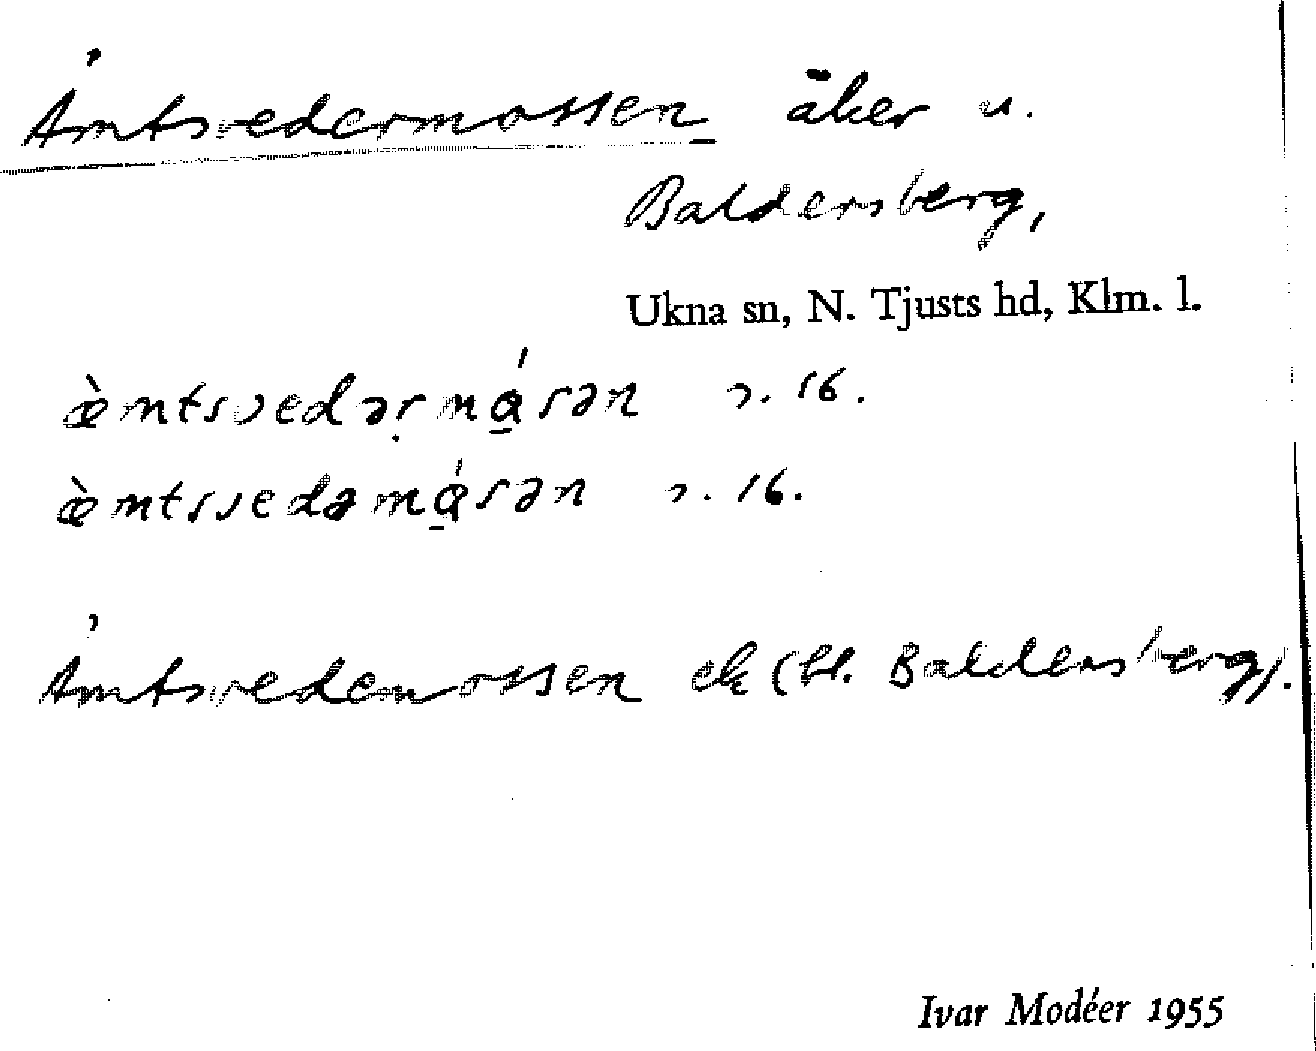 Ämtsvedermossen åker u.
Baldersberg,
Ukna sn, N. Tjusts hd, Klm. l.
æ̀mtsvedərmá̱sən 16.
æ̀mtsvedəmá̱sən 16.
Ämtsvedemossen ek (bl. Baldersberg).
Ivar Modéer 1955